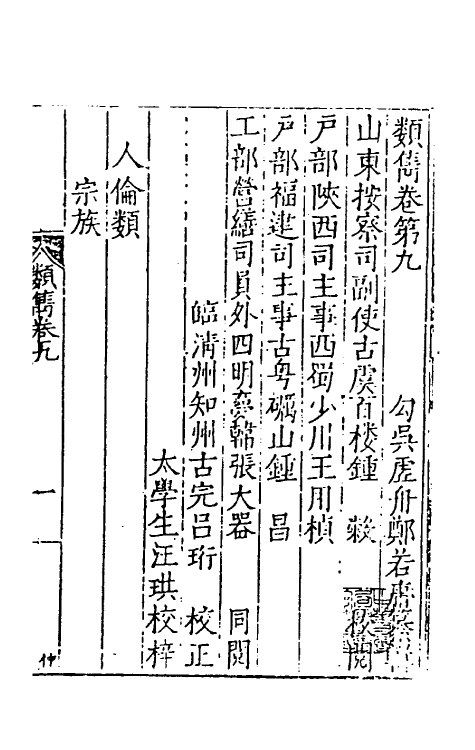 類雋卷第九
勾吳虛舟鄭若庸
山東按察司副使古虞百楼鍾 穀 校閱
戶部陝西司主事西蜀少川王用楨
戶部福建司主事古粤礪山鍾 昌
工部營繕司員外四明張大器 同閱
臨清州知州古完吕珩 校正
太學生汪珙校梓
人倫類
宗族
類雋卷九
一
仲